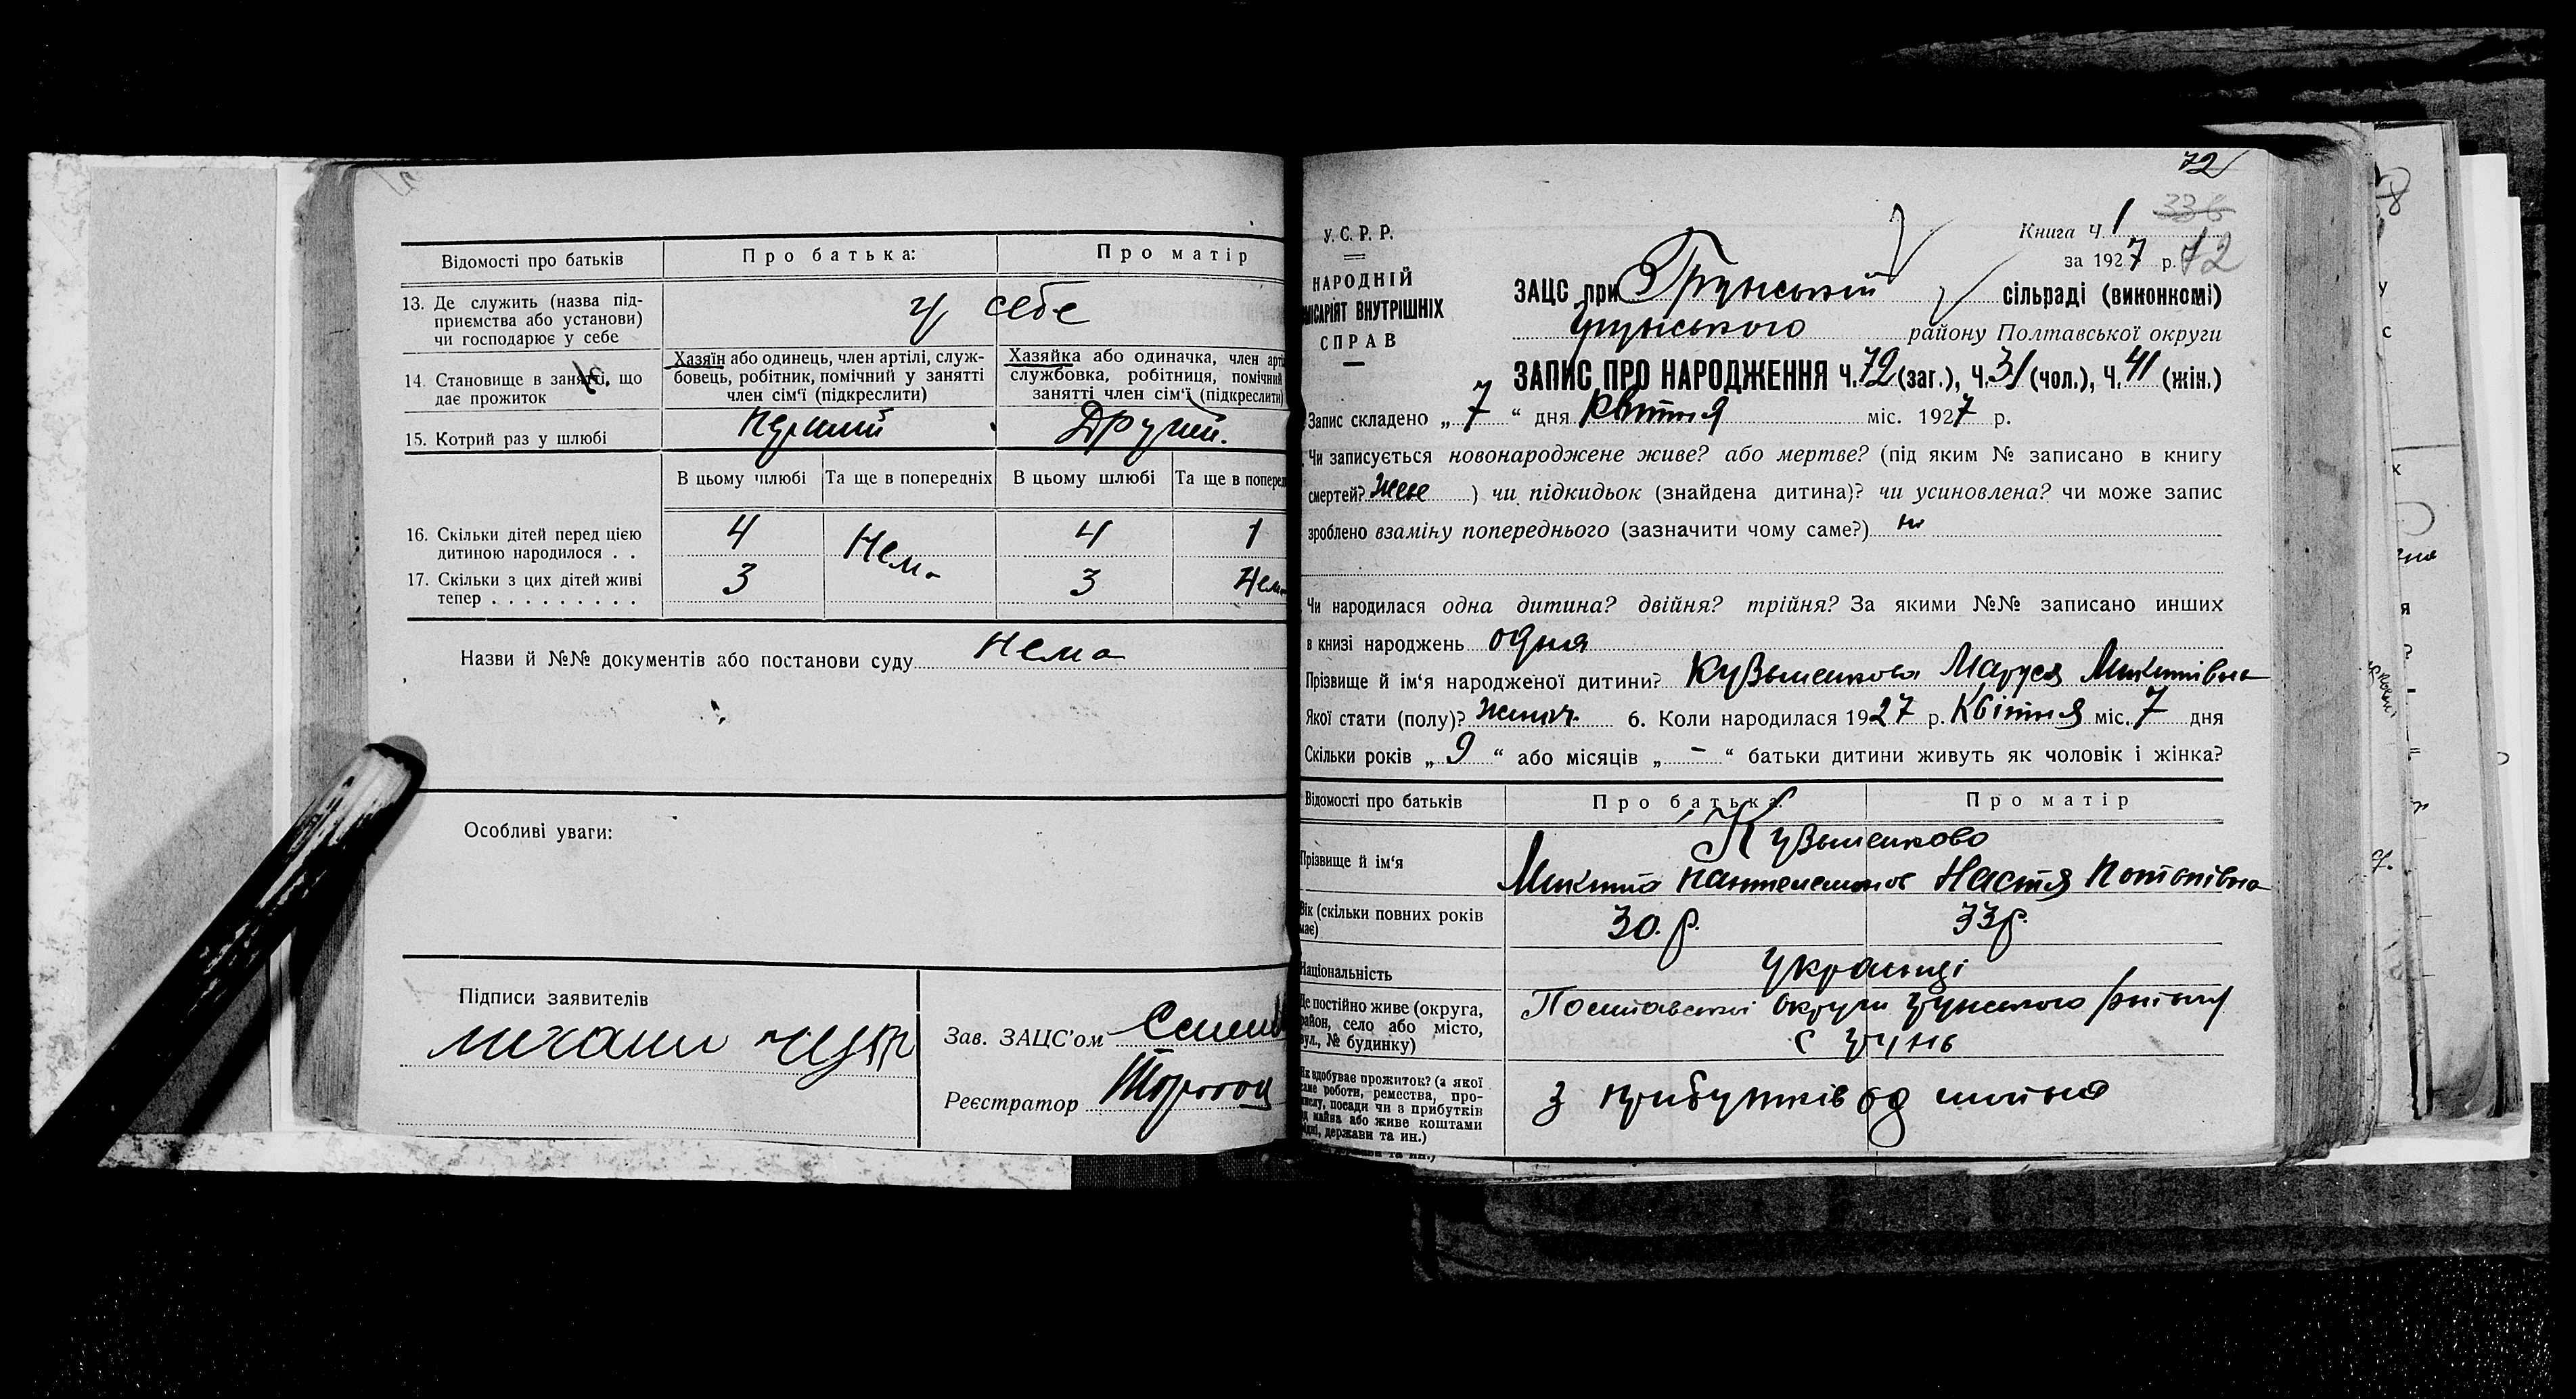 Відомості про батьків
Про батька:
Про матір
13. Де служить (назва під-
приємства або установи)
чи господарює у себе
у себе
14. Становище в занятті, що
дає прожиток
Хазяїн або одинець, член артілі, служ-
бовець, робітник, помічний у занятті
член сім'ї (підкреслити)
Хазяйка або одиначка, член арті
службовка, робітниця, помічний
занятті член сім'ї (підкреслити)
15. Котрий раз у шлюбі
Перший
Другий.
В цьому шлюбі
Та ще в попередніх
В цьому шлюбі
Та ще в поперед
16. Скільки дітей перед цією
дитиною народилося . .
4
Нема
4
1
17. Скільки з цих дітей живі
тепер . . . . . . . . .
3
3
Нема
Назви й №№ документів або постанови суду нема
Особливі уваги:
Підписи заявителів
Зав. ЗАЦС'ом
Реєстратор
72
У. С. Р. Р.
НАРОДНІЙ
МІСАРІЯТ ВНУТРІШНІХ
СПРАВ
336
Книга Ч. 1
за 1927 р. 72
ЗАЦС при Грунській сільраді (виконкомі)
грунського району Полтавської округи
ЗАПИС ПРО НАРОДЖЕННЯ Ч. 72 (заг.), Ч. 31 (чол.), Ч. 41 (жін.)
Запис складено „ 7 “ дня Квітня міс. 1927 р.
Чи записується новонароджене живе? або мертве? (під яким № записано в книгу
смертей? живе ) чи підкидьок (знайдена дитина)? чи усиновлена? чи може запис
зроблено взаміну попереднього (зазначити чому саме?) ні
Чи народилася одна дитина? двійня? трійня? За якими №№ записано инших
в книзі народжень одна
Прізвище й ім'я народженої дитини? Кузьменкова Маруся Микитівна
Якої стати (полу)? жіноч. 6. Коли народилася 1927 р. Квітня міс. 7 дня
Скільки років „ 9 “ або місяців „ – “ батьки дитини живуть як чоловік і жінка?
Відомості про батьків
Про батька:
Про матір
Прізвище й ім'я
Кузьменково
Микита Настя Потапівна
Вік (скільки повних років
має)
30. р.
33 р.
Національність
Українці
Де постійно живе (округа,
район, село або місто,
вул., № будинку)
Полтавської округи грунського району
с грунь
Як здобуває прожиток? (з якої
саме роботи, ремества, про-
мислу, посади чи з прибутків
од майна або живе коштами
рідні, держави та ин.)
з прибутків од майна